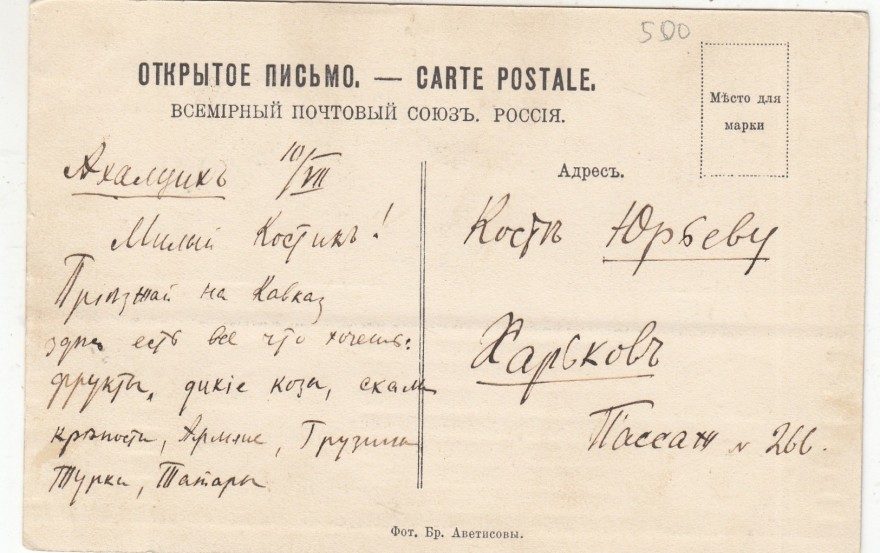 500
ОТКРЫТОЕ ПИСЬМО. — CARTE POSTALE.
ВСЕМІРНЫЙ ПОЧТОВЫЙ СОЮЗЪ. РОССІЯ.
Мѣсто для
марки
Ахалцихъ 10/VII
Милый Костикъ!
Пріѣзжай на Кавказ
здѣсь есть все что хочешь:
фрукты, дикіе козы, скалы
крѣпости, Армяне, Грузины
Турки, Татары
Адресъ.
Костѣ Юрьеву
Харьковъ
Пассаж № 266.
Фот. Бр. Аветисовы.